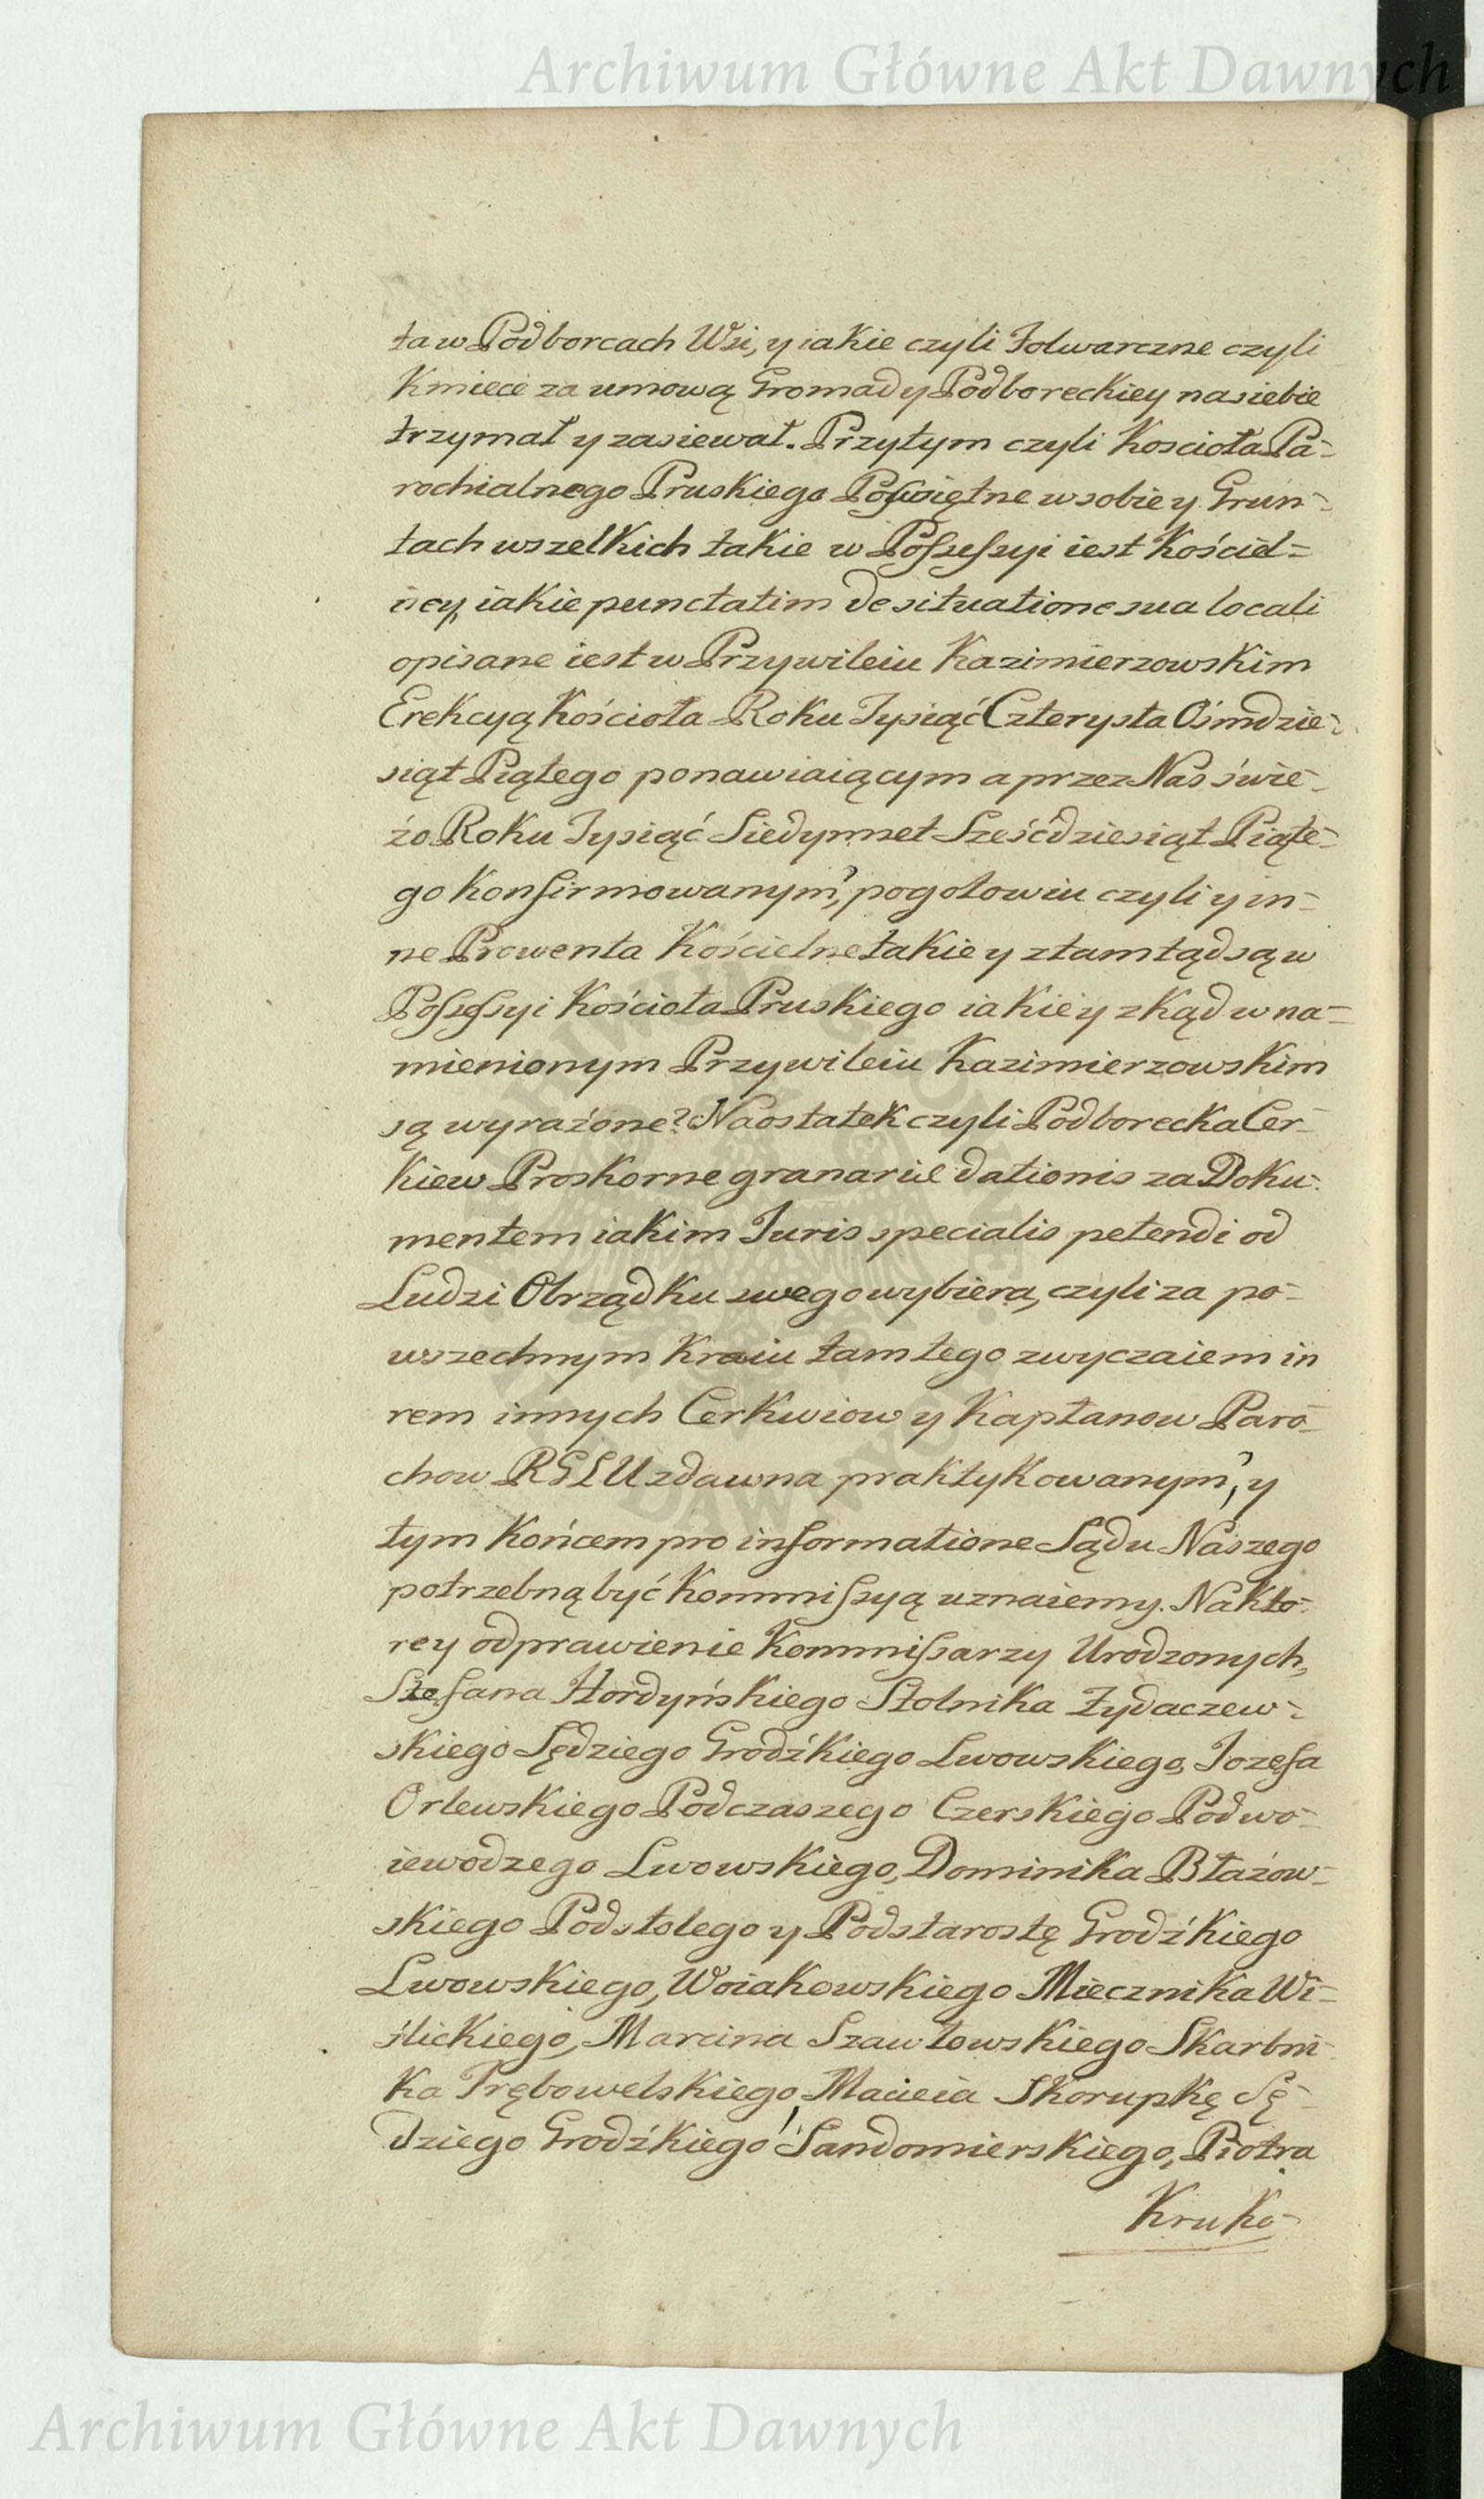 Archiwum Główne Akt Dawnych
ta w Podborcach Wsi, y iakie czyli Folwarczne czyli
Kmiece za umową Gromady Podboreckiey na siebie
trzymał y zasiewał. Przytym czyli Koscioła Pa-
rochialnego Pruskiego Poswiętne w sobie y Grun-
tach wszelkich takie w Possessyi iest Kościel-
ney, iakie punctatim de situatione sua locali
opisane iest w Przywileiu Kazimierzowskim
Erekcyą Kościoła Roku Tysiąć Czterysta Ośmdzie-
siąt Piątego ponawiaiącym a przez Nas świe-
żo Roku Tysiąć Siedymset Sześćdziesiąt Piąte-
go Konfirmowanym?, pogotowiu czyli y in-
ne Prowenta Kościelne takie y ztamtąd są w
Possessyi Kościoła Pruskiego iakie y zkąd w na-
mienionym Przywileiu Kazimierzowskim
są wyrażone? Naostatek czyli Podborecka Cer-
kiew Proskorne granariae dationis za Doku-
mentem iakim Iuris specialis petendi od
Ludzi Obrządku swego wybiera, czyli za po-
wszechnym Kraiu tamtego zwyczaiem in
rem innych Cerkwiow y Kapłanow Paro-
chow RGLU zdawna praktykowanym?, y
tym końcem pro informatione Sądu Naszego
potrzebną być Kommissyą uznaiemy. Na kto-
rey odprawienie Kommissarzy Urodzonych,
Stefana Hordyńskiego Stolnika Żydaczew-
skiego Sędziego Grodźkiego Lwowskiego, Iozefa
Orlewskiego Podczaszego Czerskiego Podwo-
iewodzego Lwowskiego, Dominika Błażow-
skiego Podstolego y Podstarostę Grodźkiego
Lwowskiego, Woiakowskiego Miecznika Wi-
ślickiego, Marcina Szawłowskiego Skarbni-
ka Trębowelskiego, Macieia Skorupkę Sę-
dziego Grodźkiego Sandomierskiego, Piotra
Kruko-
Archiwum Główne Akt Dawnych